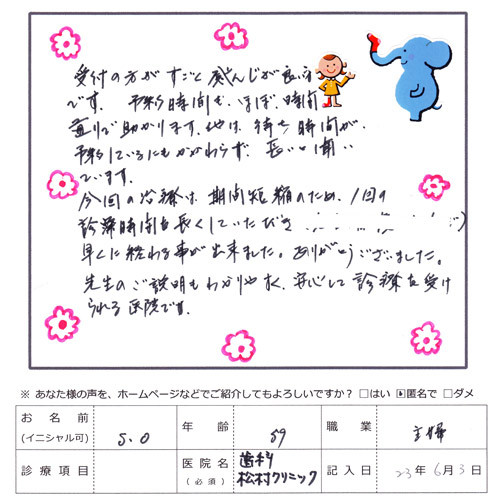 受付の方がすごく感んじが良い
です。予約時間も、ほぼ、時間
通りで助かります。他は、待ち時間が、
予約しているにもかかわらず、長いと聞い
ています。
今回の治療は、期間短縮のため、1回の
診療時間も長くしていただき
早くに終わる事が出来ました。ありがとうございました。
先生のご説明もわかりやすく、安心して診療を受け
られる医院です。
※ あなた様の声を、ホームページなどでご紹介してもよろしいですか？ □はい ☑匿名で □ダメ
お名前 (イニシャル可) S.O 年齢 59 職業 主婦
診療項目 医院名 (必須) 歯科 松村クリニック 記入日 23年6月3日